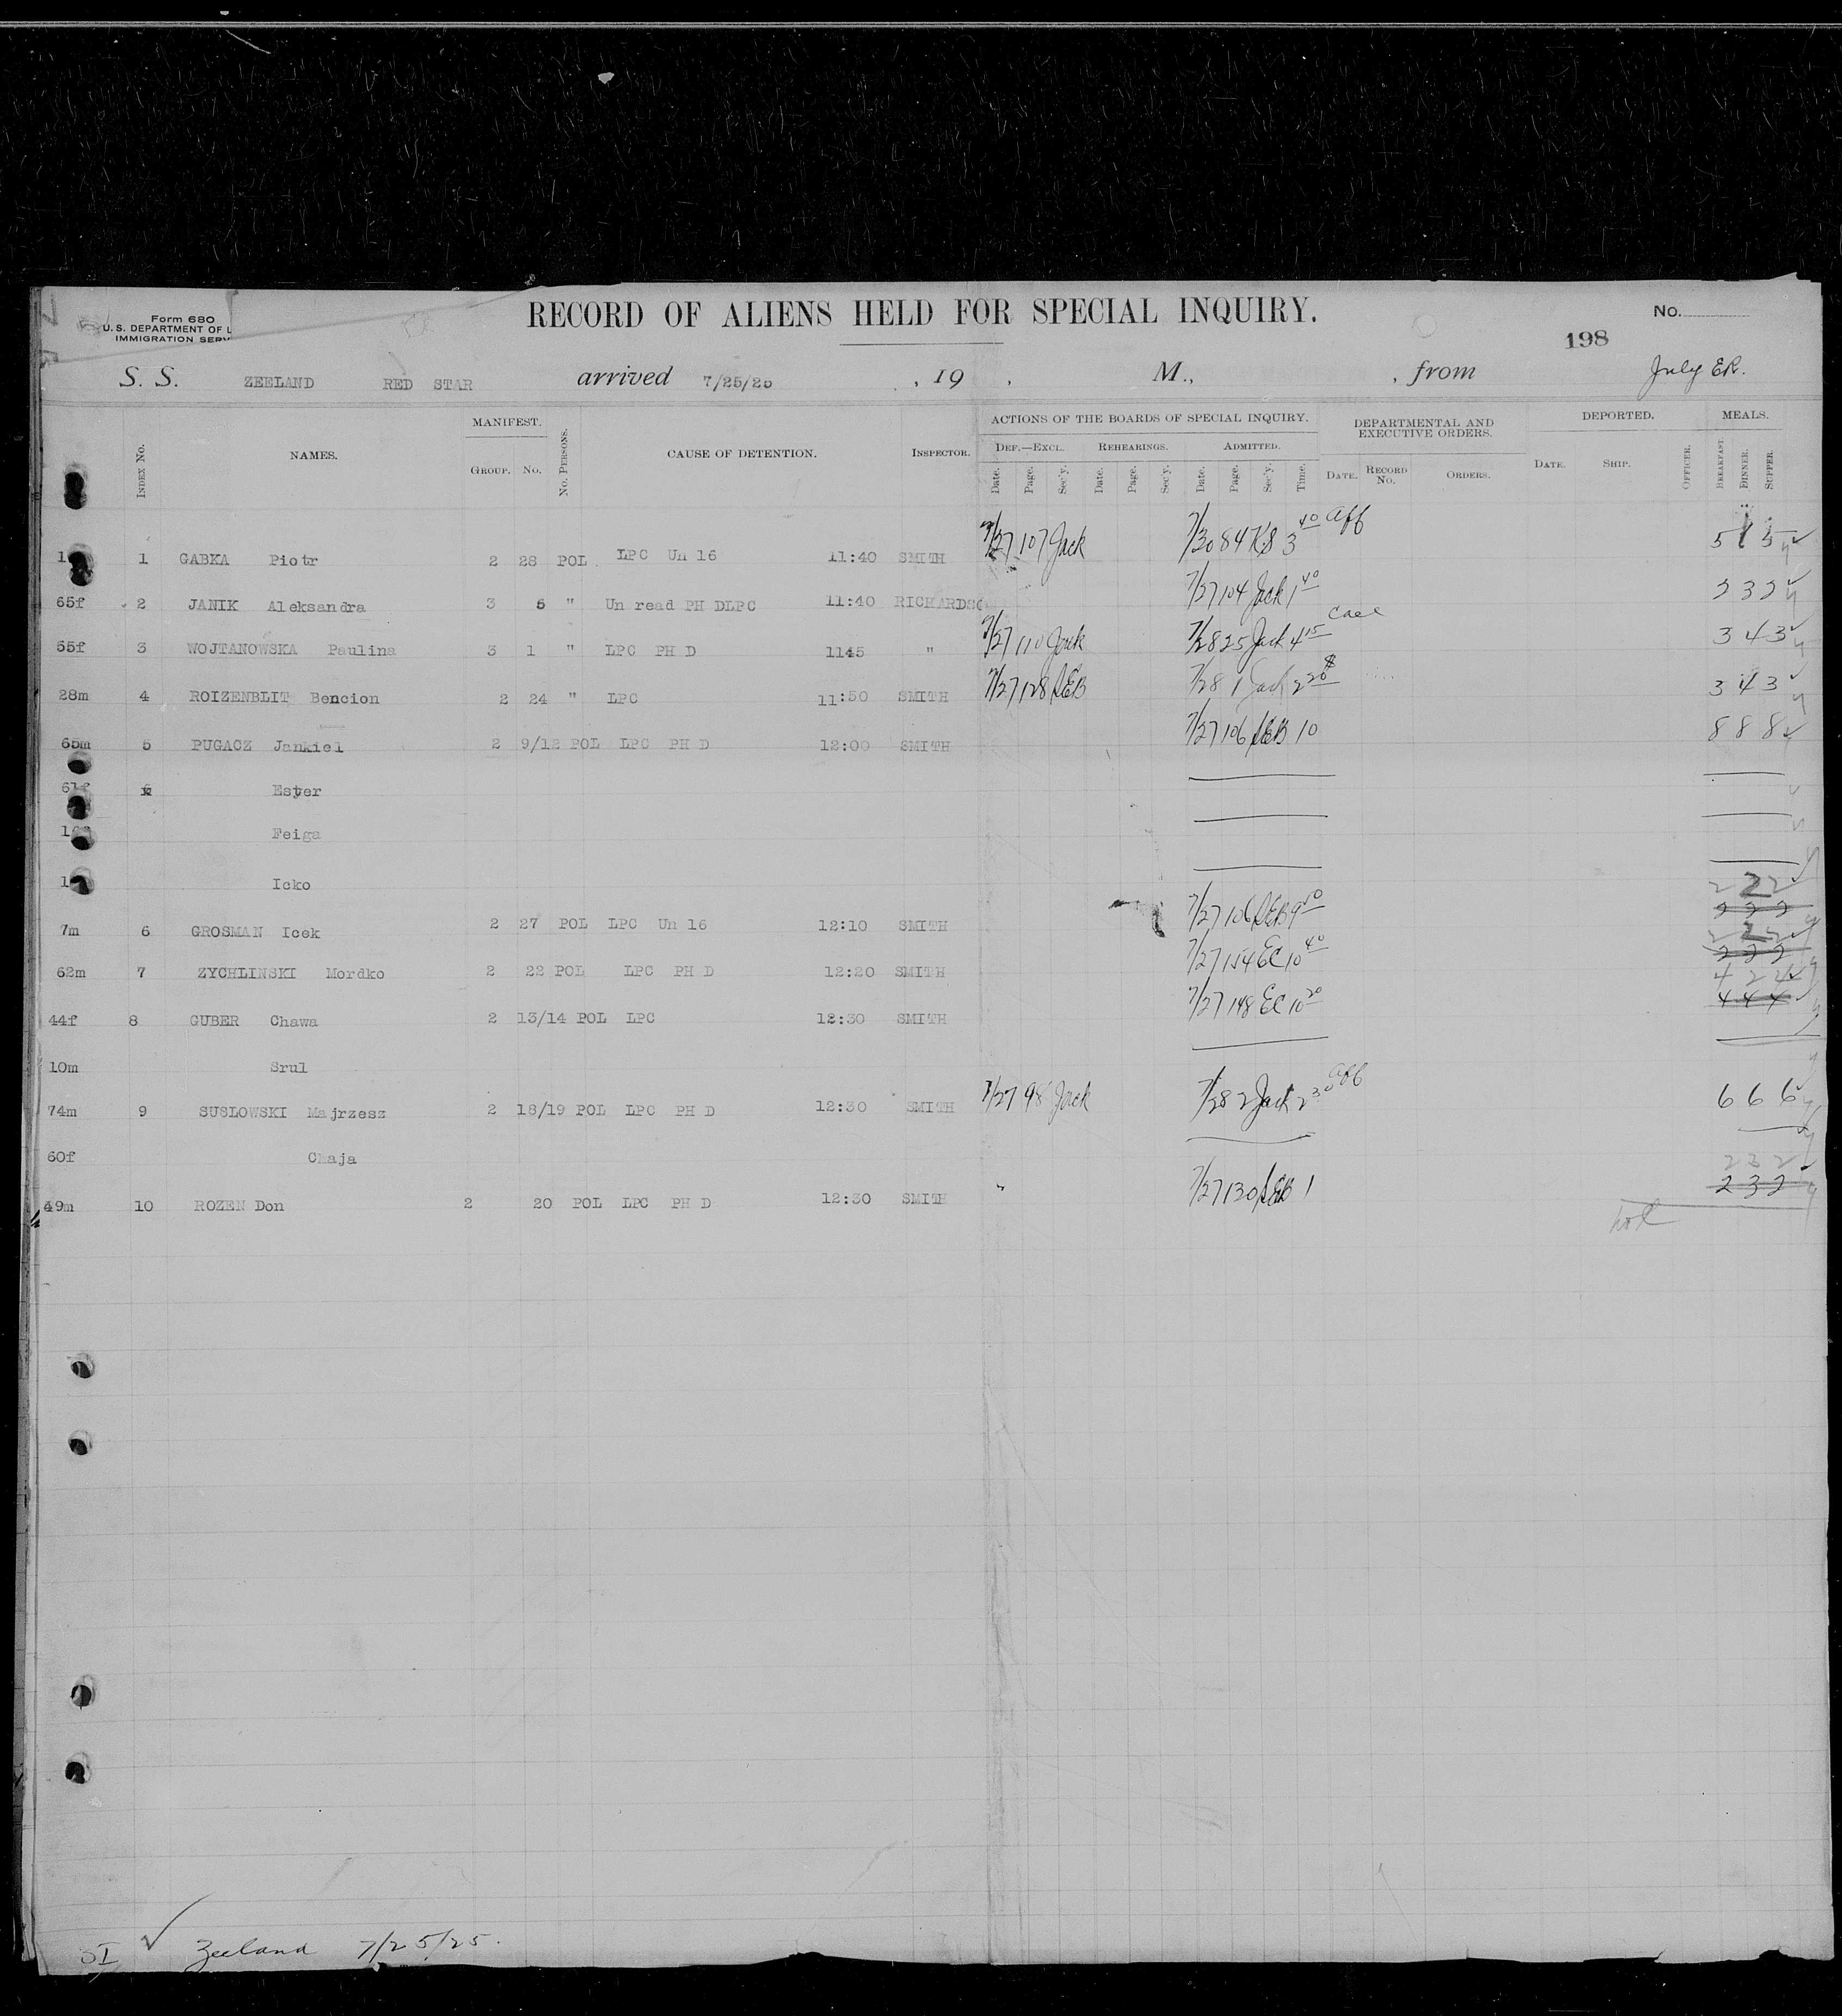 Form 680
U.S. DEPARTMENT OF L
IMMIGRATION SERV
RECORD OF ALIENS HELD FOR SPECIAL INQUIRY.
No.
198
S. S. ZEELAND RED STAR arrived 7/25/25 , 19 , M., , from July ER.
INDEX No. NAMES. MANIFEST. GROUP. No. No. PERSONS. CAUSE OF DETENTION. INSPECTOR. ACTIONS OF THE BOARDS OF SPECIAL INQUIRY. DEPARTMENTAL AND EXECUTIVE ORDERS. DEPORTED. MEALS.
DEF.—EXCL. REHEARINGS. ADMITTED.
Date. Page. Sec'y. Date. Page. Sec'y. Date. Page. Sec'y. Time. DATE. RECORD No. ORDERS. DATE. SHIP. OFFICER. BREAKFAST. DINNER. SUPPER.
1 GABKA Piotr 2 28 POL LPC Un 16 11:40 SMITH 7/27 107 Jack 7/30 84 KS 3 40 aff 5
65f 2 JANIK Aleksandra 3 5 " Un read PH DLPC 11:40 RICHARDSO 7/27 104 Jack 1 40 2 3 2
55f 3 WOJTANOWSKA Paulina 3 1 " LPC PH D 1145 " 7/27 110 Jack 7/28 25 Jack 4 15 3 4 3
28m 4 ROIZENBLIT Bencion 2 24 " LPC 11:50 SMITH 7/27 128 SEB 7/28 1 Jack 2 20 $ 3 4 3
65m 5 PUGACZ Jankiel 2 9/12 POL LPC PH D 12:00 SMITH 7/27 106 SEB 10 8 8 8
61f Ester
Feiga
Icko
7m 6 GROSMAN Icek 2 27 POL LPC Un 16 12:10 SMITH 7/27 106 SEB 9 50 2 2 2
2 2 2
62m 7 ZYCHLINSKI Mordko 2 22 POL LPC PH D 12:20 SMITH 7/27 154 EC 10 40 2 2 2
44f 8 GUBER Chawa 2 13/14 POL LPC 12:30 SMITH 7/27 148 EC 10 20 4 4 4
10m Srul
74m 9 SUSLOWSKI Majrzesz 2 18/19 POL LPC PH D 12:30 SMITH 7/27 98 Jack 7/28 2 Jack 2 30 aff 6 6 6
60f Chaja
2 3 2
49m 10 ROZEN Don 2 20 POL LPC PH D 12:30 SMITH 7/27 130 SEB 1 2 3 2
SI Zeeland 7/25/25.